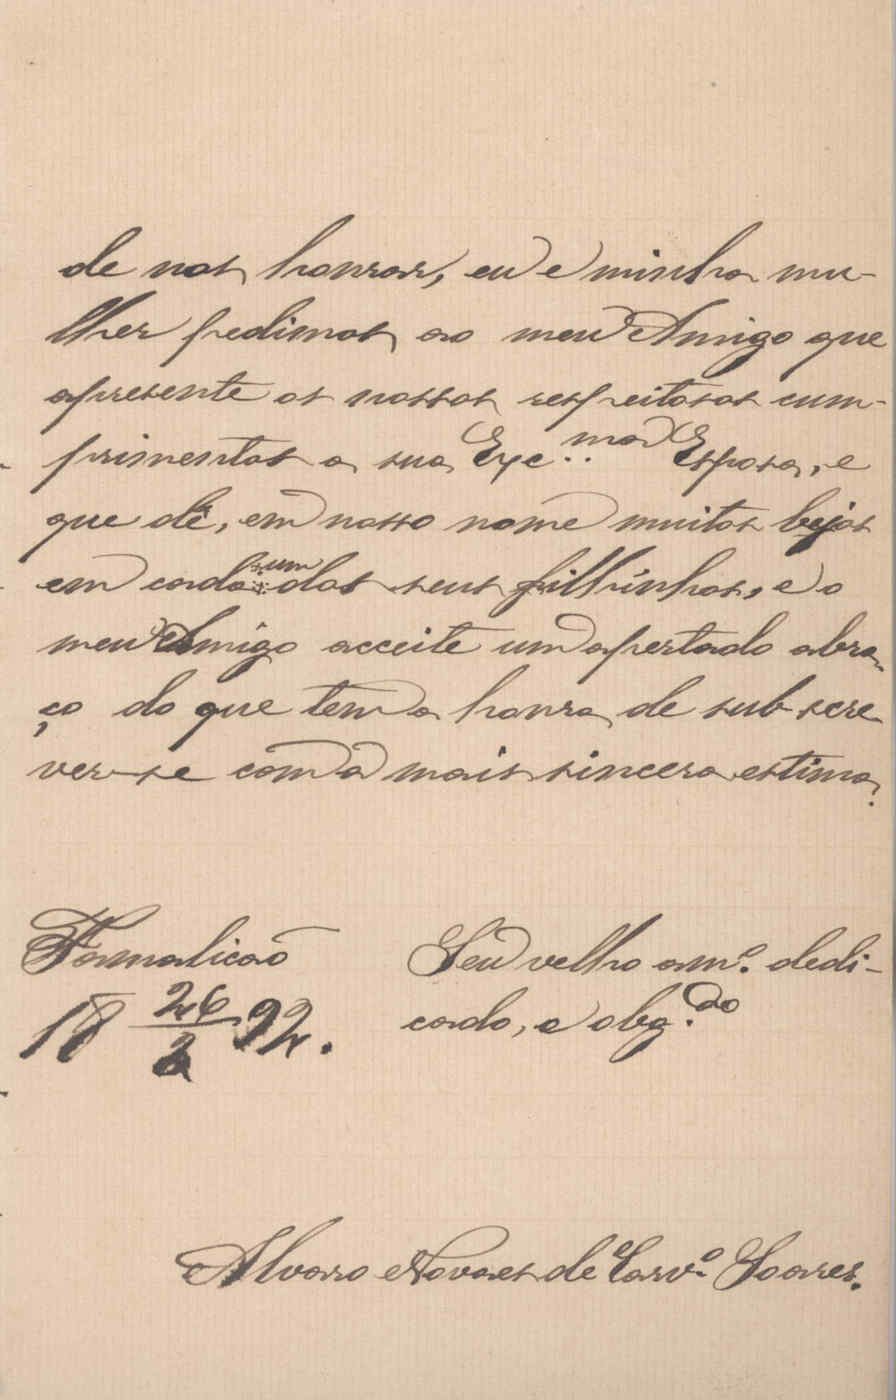 de nos honrar, eu e minha mu-
lher pedimos ao meu Amigo que
apresente os nossos respeitosos cum-
primentos a sua Exc.ma Esposa, e
que dê, em nosso nome muitos bejos
em cada um dos seus filhinhos, e o
meu Amigo acceite um apertado abra-
ço do que tem a honra de sub-scre-
ver-se com a mais sincera estima.
Famalicão
18 26/2 92.
Seu velho am.º dedi-
cado, e obg.do
Alvaro Novaes de Carv.º Soares.